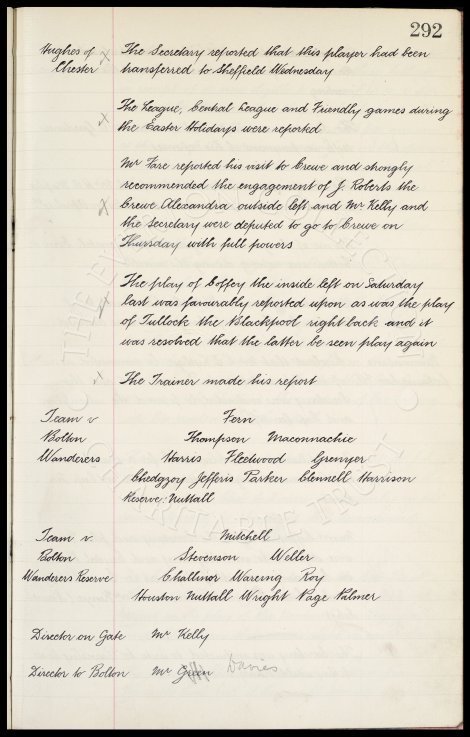 292
Hughes of Chester
The Secretary reported that this player had been
transferred to Sheffield Wednesday
The League, Central League and Friendly games during
the Easter Holidays were reported
Mr Fare reported his visit to Crewe and strongly
recommended the engagement of J. Roberts the
Crewe Alexandra outside left and Mr Kelly and
the Secretary were deputed to go to Crewe on
Thursday with full powers
The play of Coffey the inside left on Saturday
last was favourably reported upon as was the play
of Tullock the Blackpool right back and it
was resolved that the latter be seen play again
The Trainer made his report
Team v Fern
Bolton Thompson Maconnachie
Wanderers Harris Fleetwood Grenyer
Chedgzoy Jefferis Parker Clennell Harrison
Reserve: Nuttall
Team v. Mitchell
Bolton Stevenson Weller
Wanderers Reserve Challinor Wareing Roy
Houston Nuttall Wright Page Palmer
Director on Gate Mr Kelly
Director to Bolton Mr Green Davies